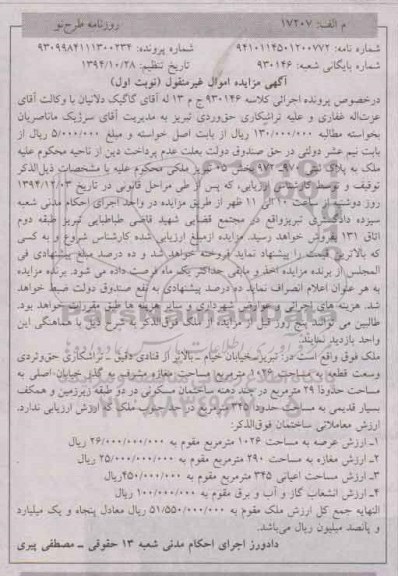 م الف: ۱۷۲۰۷ روزنامه طرح‌نو
شماره نامه: ۹۴۱۰۱۱۴۵۰۱۲۰۰۷۷۲ شماره پرونده: ۹۳۰۹۹۸۴۱۱۱۳۰۰۲۳۴
شماره بایگانی شعبه: ۹۳۰۱۴۶ تاریخ تنظیم: ۱۳۹۴/۱۰/۲۸
آگهی مزایده اموال غیرمنقول (نوبت اول)
درخصوص پرونده اجرائی کلاسه ۹۳۰۱۴۶ ج م ۱۳ له آقای گاگیک دلانیان با وکالت آقای
عزت‌اله غفاری و علیه تراشکاری حق‌وردی تبریز به مدیریت آقای سرژیک ماناصریان
بخواسته مطالبه ۱۳۰/۰۰۰/۰۰۰ ریال از بابت اصل خواسته و مبلغ ۵/۰۰۰/۰۰۰ ریال از
بابت نیم عشر دولتی در حق صندوق دولت بعلت عدم پرداخت دین از ناحیه محکوم علیه
ملک به پلاک ثبتی ۹۷۰ و ۹۷۲ بخش ۰۵ تبریز ملکی محکوم علیه با مشخصات ذیل‌الذکر
توقیف و توسط کارشناس ارزیابی، که پس از طی مراحل قانونی در تاریخ ۱۳۹۴/۱۲/۰۳
روز دوشنبه از ساعت ۱۰ الی ۱۱ ظهر از طریق مزایده در واحد اجرای احکام مدنی شعبه
سیزده دادگستری تبریزواقع در مجتمع قضایی شهید قاضی طباطبایی تبریز طبقه دوم
اتاق ۱۳۱ بفروش خواهد رسید. مزایده ازمبلغ ارزیابی شده کارشناس شروع و به کسی
که بالاترین قیمت را پیشنهاد نماید فروخته خواهد شد و ده درصد مبلغ پیشنهادی فی
المجلس از برنده مزایده اخذ و مابقی حداکثر یک ماه فرصت داده می شود. برنده مزایده
به هر عنوان اعلام انصراف نماید ده درصد پیشنهادی به نفع صندوق دولت ضبط خواهد
شد. هزینه های اجرائی و عوارض شهرداری و سایر هزینه ها طبق مقررات خواهد بود.
طالبین می توانند پنج روز قبل از مزایده از ملک فوق‌الذکر به شرح ذیل با هماهنگی این
واحد بازدید نمایند.
ملک فوق واقع است در: تبریز ـ خیابان خیام ـ بالاتر از قنادی دقیق ـ تراشکاری حق‌وردی
وسعت قطعه به مساحت ۱۰۲۶ مترمربع مساحت مغازه مشرف به گذر خیابان اصلی به
مساحت حدوداً ۲۹ مترمربع در چند دهنه ساختمان مسکونی در دو طبقه زیرزمین و همکف
بسیار قدیمی به مساحت حدوداً ۳۴۵ مترمربع در ملک که ارزش ارزیابی ندارد.
ارزش معاملاتی ساختمان فوق‌الذکر:
۱ـ ارزش عرصه به مساحت ۱۰۲۶ مترمربع مقوم به ۲۶/۰۰۰/۰۰۰/۰۰۰ ریال
۲ـ ارزش مغازه به مساحت ۲۹۰ مترمربع مقوم به ۲۵/۰۰۰/۰۰۰/۰۰۰ ریال
۳ـ ارزش مساحت اعیانی ۳۴۵ مترمربع مقوم به ۴۵۰/۰۰۰/۰۰۰ریال
۴ـ ارزش انشعاب گاز و آب و برق مقوم به ۱۰۰/۰۰۰/۰۰۰ ریال
النهایه جمع کل ارزش ملک مقوم به ۵۱/۵۵۰/۰۰۰/۰۰۰ ریال معادل پنجاه و یک میلیارد
و پانصد میلیون ریال می‌باشد.
دادورز اجرای احکام مدنی شعبه ۱۳ حقوقی ـ مصطفی پیری